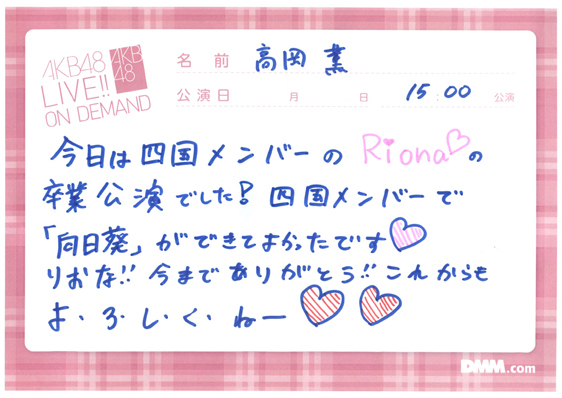 AKB48
LIVE!!
ON DEMAND
AKB
48
名前 高岡薫
公演日 月 日 15:00 公演
今日は四国メンバーの Riona♡の
卒業公演でした! 四国メンバーで
「向日葵」ができてよかったです♡
りおな!! 今までありがとう!! これからも
よ・ろ・し・く・ねー ♡ ♡
DMM.com